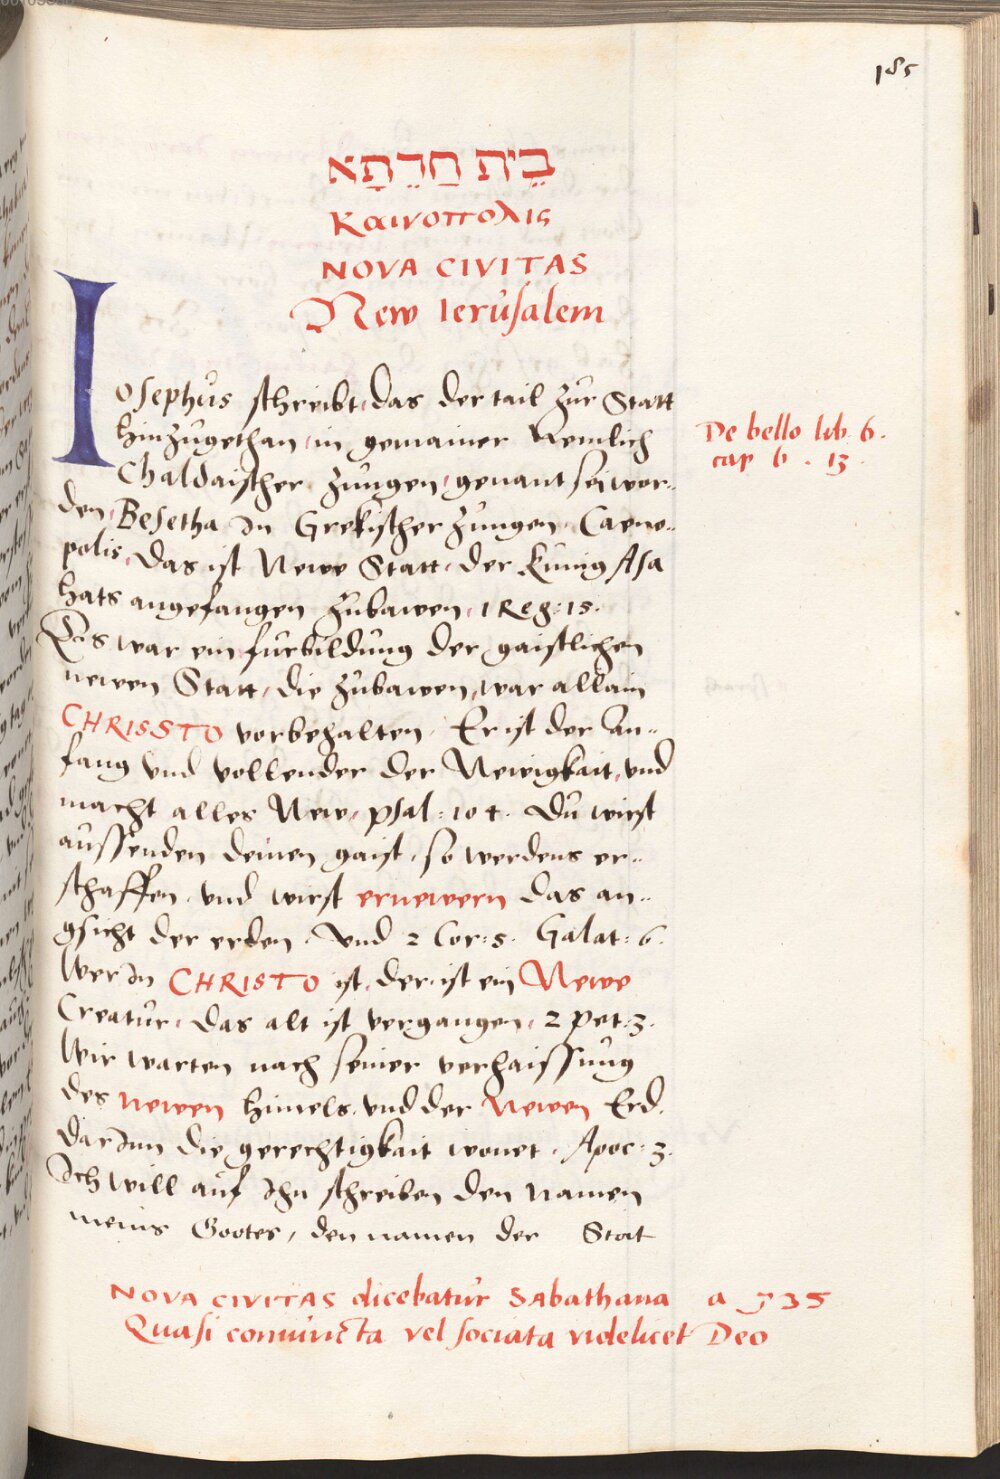 185
בֵית חַדֵתָא
Καινοπολις
NOVA CIVITAS
New Ierusalem
Iosephus schreibt, das der tail zur Statt
hinzugethan, in gemainer Nemlich
De bello lib. 6.
cap 6. 13.
Chaldaischer zungen, genant sei wor=
den, Besetha In Grekischer zungen, Caeno=
polis, Das ist Newe Statt, der Künig Asa
hats angefangen zubawen, 1 Reg: 15.
Das war ein furbildung der gaistlichen
newen Statt, die zubawen, war allain
CHRISSTO vorbehalten, Er ist der An=
fang vnd vollender der Newigkait, vnd
macht alles New, psal: 104. Du wirst
aussenden deinen gaist, so werdens er=
schaffen, vnd wirst ernewern das an=
gsicht der erden. Vnd 2 Cor: 5. Galat: 6.
Wer In CHRISTO ist, der ist ein Newe
Creatur, das alt ist vergangen, 2 Pet: 3.
Wir warten nach seiner verhaissung
des newen himels, vnd der Newen Erd.
Dar Inn die gerechtigkait wonet, Apoc: 3.
Ich will auf Ihn schreiben den Namen
meins Gootes, den namen der Stat
NOVA CIVITAS dicebatur Sabathana a 535
Quasi coniuncta vel sociata videlicet Deo